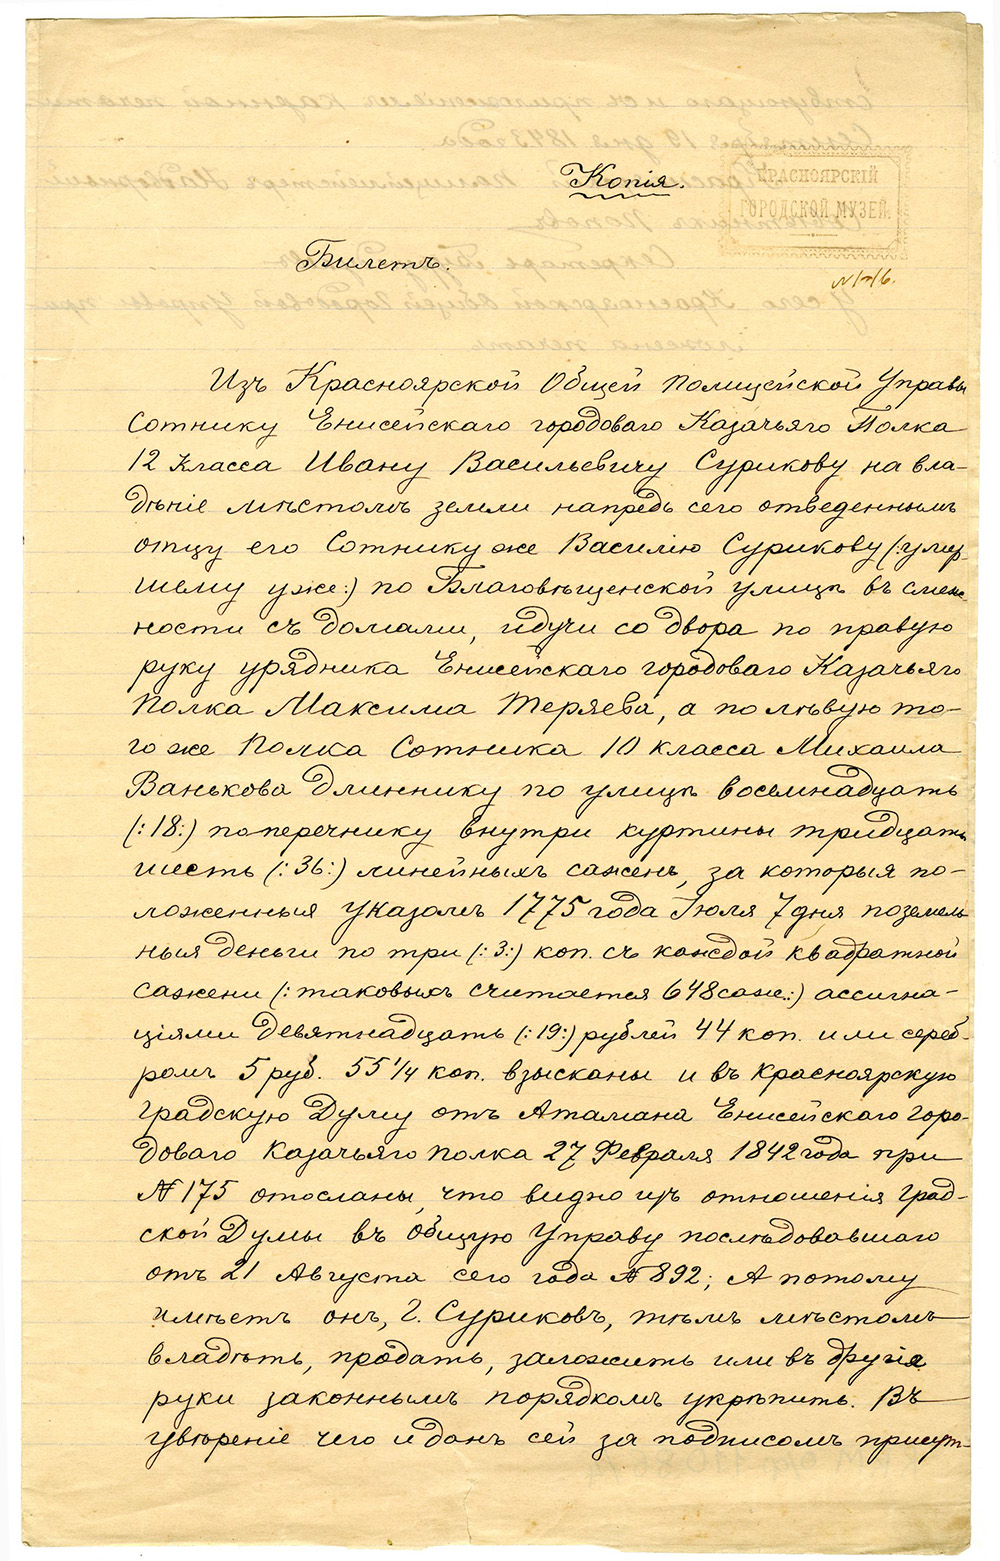 Копія.
КРАСНОЯРСКІЙ
ГОРОДСКОЙ МУЗЕЙ.
Билетъ.
Изъ Красноярской Общей Полицейской Управы
Сотнику Енисейскаго городоваго Казачьяго Полка
12 Класса Ивану Васильевичу Сурикову на вла-
дѣніе мѣстомъ земли напредь сего отведеннымъ
отцу его Сотнику же Василію Сурикову (:умер-
шему уже:) по Благовѣщенской улицѣ въ смеж-
ности съ домами, идучи со двора по правую
руку урядника Енисейскаго городоваго Казачьяго
Полка Максима Теряева, а по лѣвую то-
го же Полка Сотника 10 класса Михаила
Ванькова длиннику по улицѣ восемнадцать
(:18:) поперечнику внутри куртины тридцать
шесть (:36:) линейныхъ сажень, за которыя по-
ложенныя указомъ 1775 года Іюля 7 дня поземель
ныя деньги по три (:3:) коп. съ каждой квадратной
сажени (:таковыхъ считается 648 саж:) ассигна-
ціями девятнадцать (:19:) рублей 44 коп. или сереб-
ромъ 5 руб. 55 1/4 коп. взысканы и въ Красноярскую
Градскую Думу отъ Атамана Енисейскаго Горо-
доваго Казачьяго полка 27 Февраля 1842 года при
№ 175 отосланы, что видно изъ отношенія Град-
ской Думы въ общую Управу послѣдовавшаго
отъ 21 Августа сего года № 892; А потому
имѣетъ онъ, Г. Суриковъ, тѣмъ мѣстомъ
владѣть, продать, заложить или въ другія
руки законнымъ порядкомъ укрѣпить. Въ
увѣреніе чего и данъ сей за подписомъ присут-